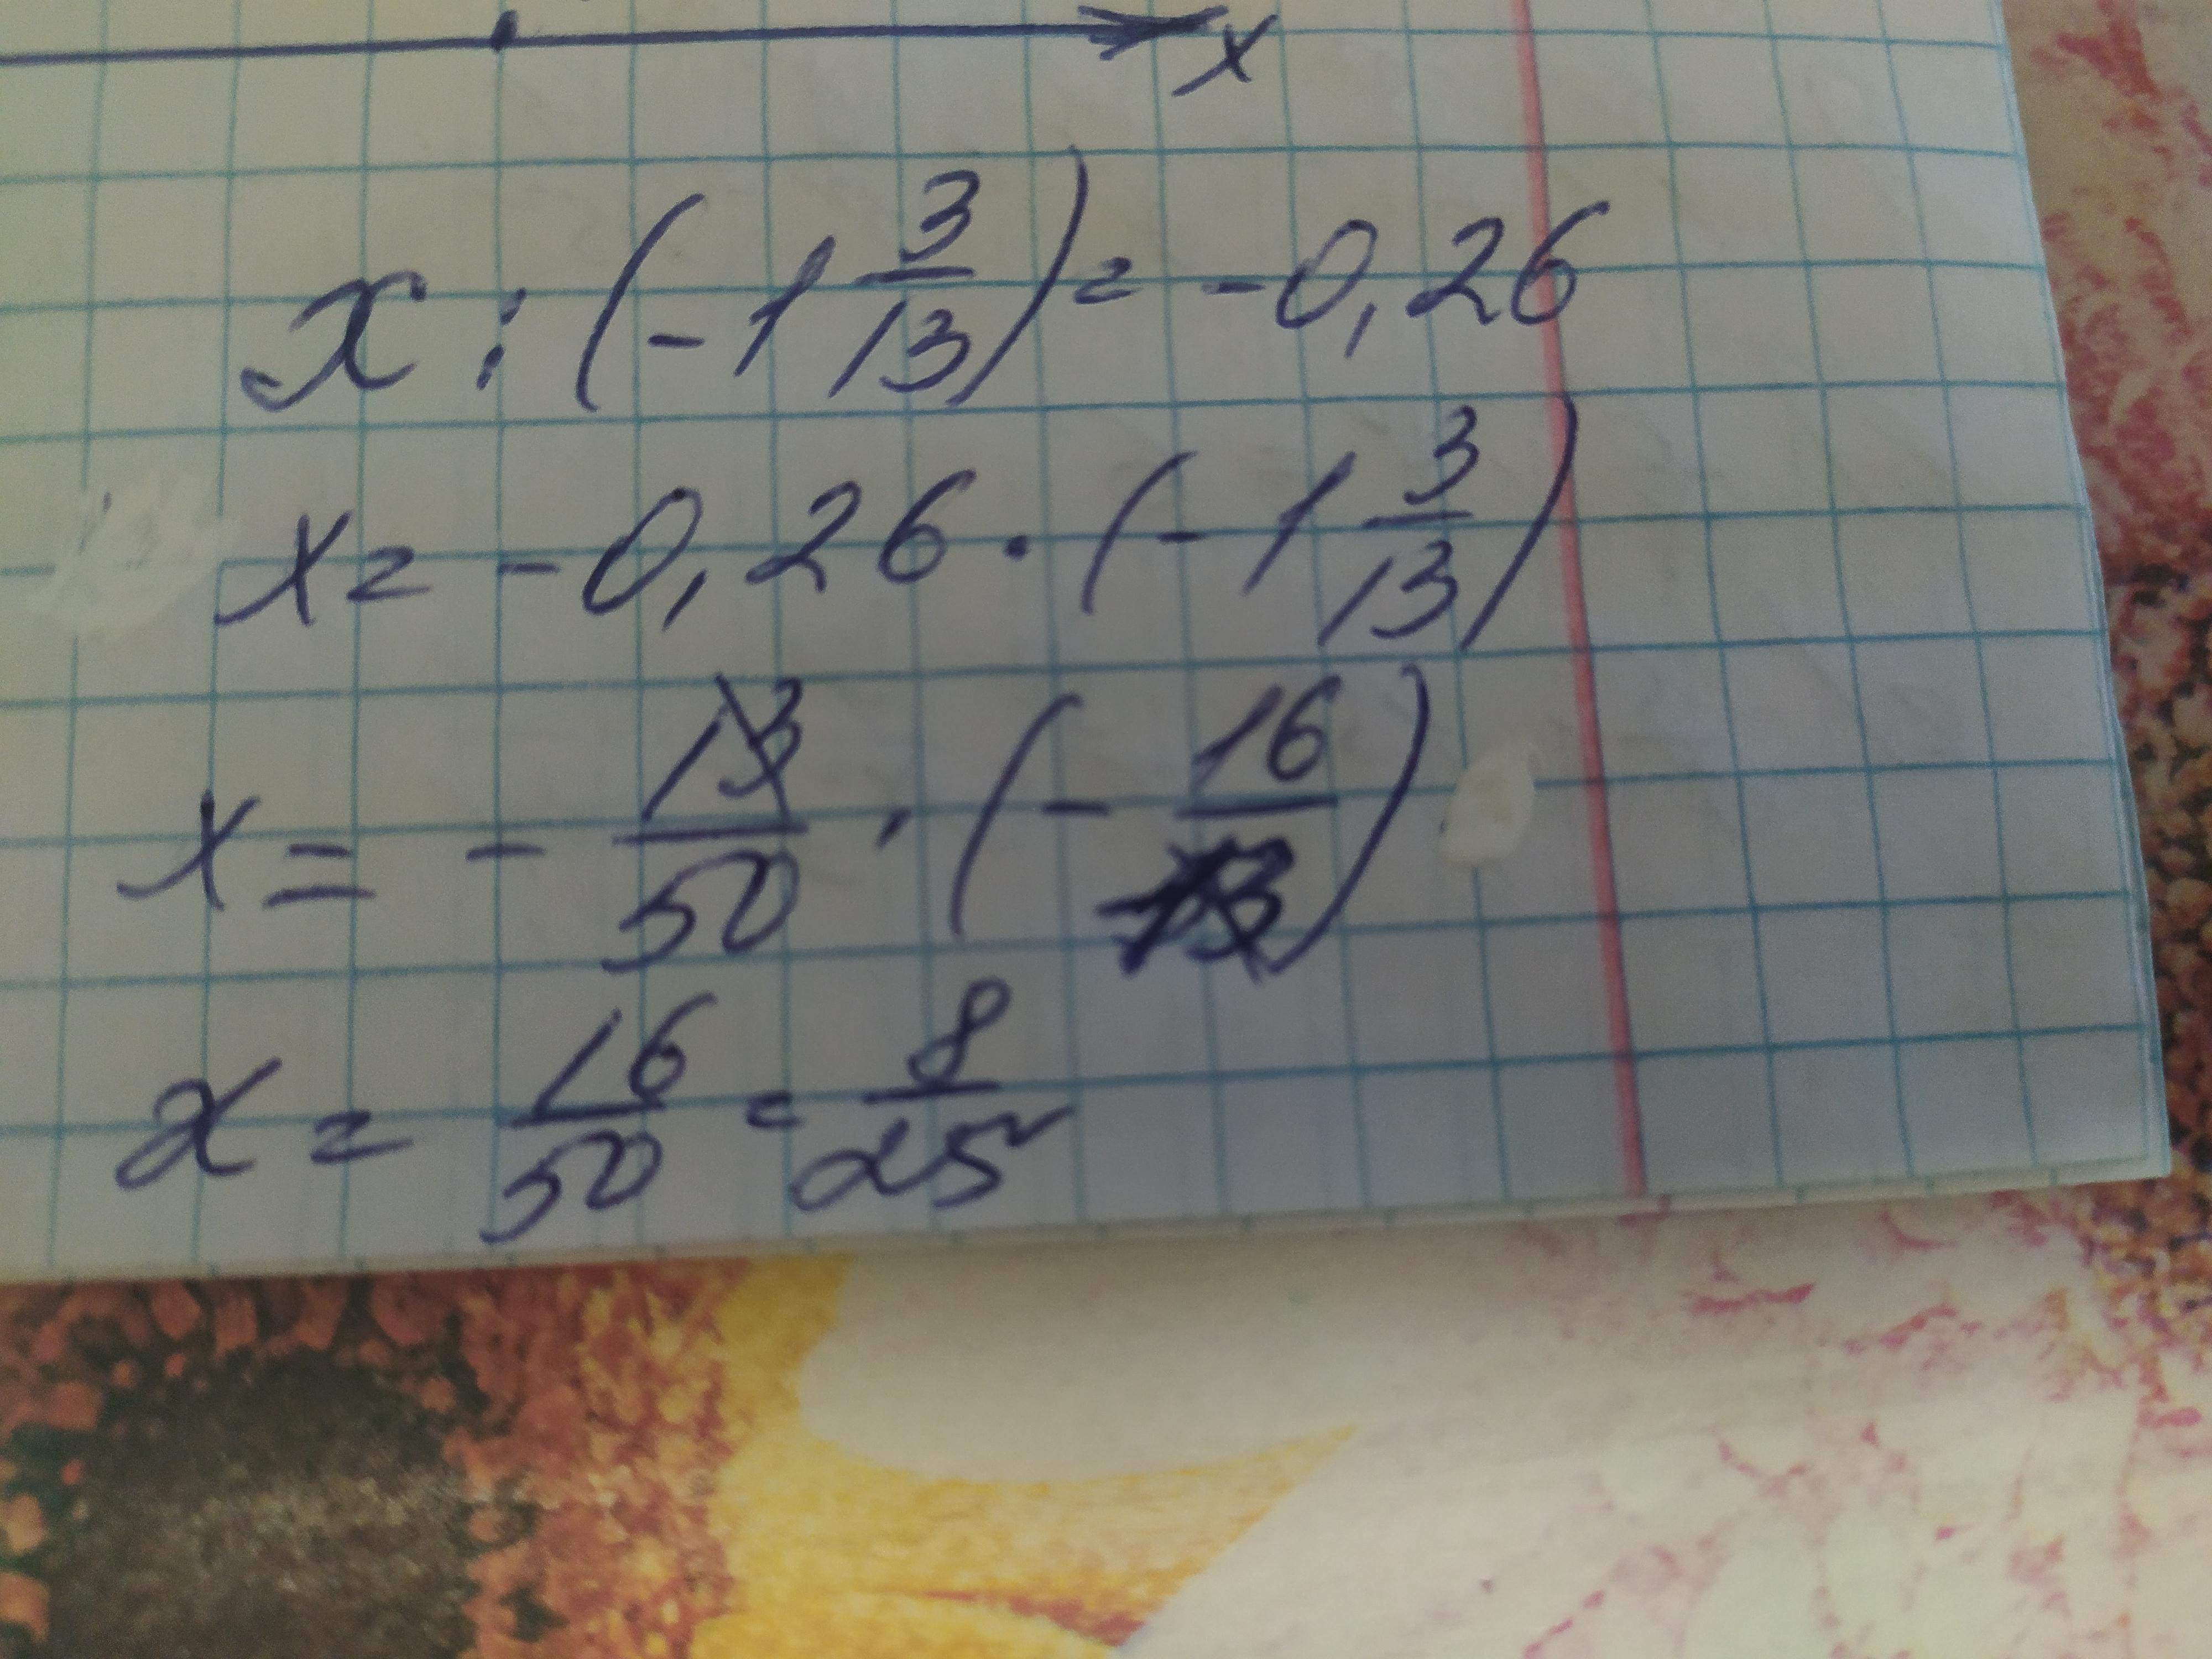 x
x : (-1 3/13) = -0,26
x = -0,26 · (-1 3/13)
x = - 13/50 · (- 16/13)
x = 16/50 = 8/25